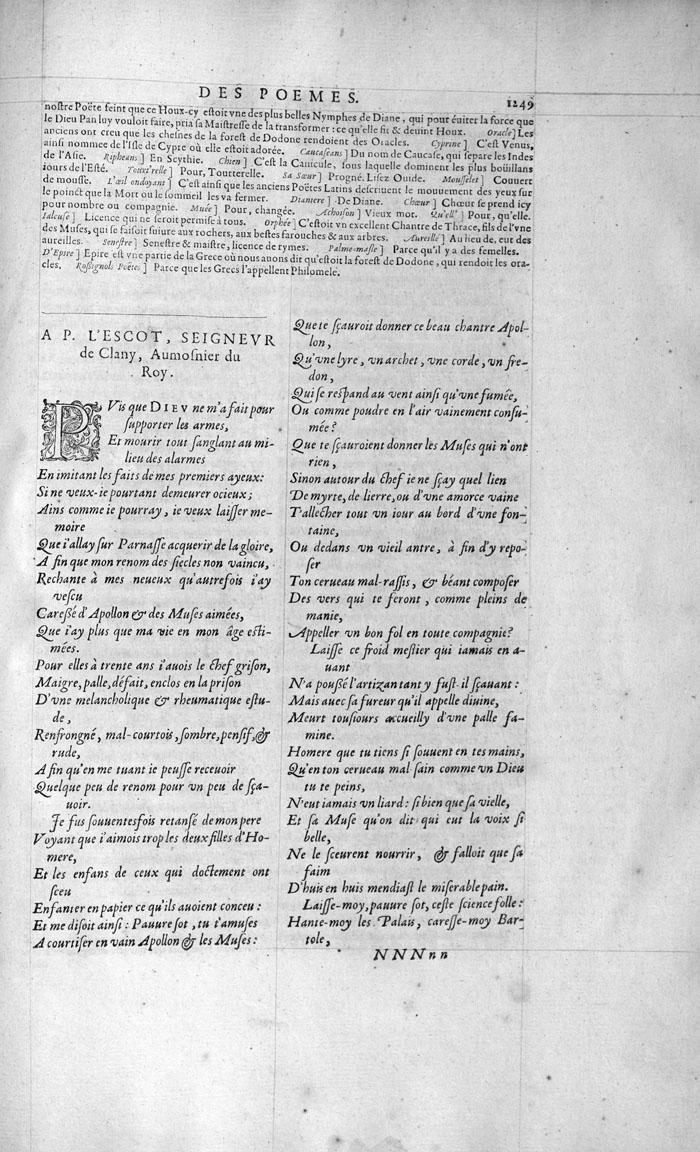 DES POEMES. 1249
nostre Poëte feint que ce Houx-cy estoit vne des plus belles Nymphes de Diane, qui pour éuiter la force que
le Dieu Pan luy vouloit faire, pria sa Maistresse de la transformer : ce qu'elle fit & deuint Houx. Oracle] Les
anciens ont creu que les chesnes de la forest de Dodone rendoient des Oracles. Cyprine] C'est Venus,
ainsi nommee de l'Isle de Cypre où elle estoit adorée. Caucaseans] Du nom de Caucase, qui separe les Indes
de l'Asie. Ripheans] En Scythie. Chien] C'est la Canicule, sous laquelle dominent les plus boüillans
iours de l'Esté. Tourt'relle] Pour, Tourterelle. Sa Sœur] Progné. Lisez Ouide. Mousselet] Couuert
de mousse. L'œil ondoyant] C'est ainsi que les anciens Poëtes Latins descriuent le mouuement des yeux sur
le poinct que la Mort ou le sommeil les va fermer. Dianiere] De Diane. Chœur] Chœur se prend icy
pour nombre ou compagnie. Muée] Pour, changée. Achoison] Vieux mot. Qu'ell'] Pour, qu'elle.
Ialeuse] Licence qui ne seroit permise à tous. Orphée] C'estoit vn excellent Chantre de Thrace, fils de l'vne
des Muses, qui se faisoit suiure aux rochers, aux bestes farouches & aux arbres. Aureillé] Au lieu de, eut des
aureilles. Senestre] Senestre & maistre, licence de rymes. Palme-masle] Parce qu'il y a des femelles.
D'Epire] Epire est vne partie de la Grece où nous auons dit qu'estoit la forest de Dodone, qui rendoit les ora-
cles. Rossignols Poëtes] Parce que les Grecs l'appellent Philomele.
A P. L'ESCOT, SEIGNEVR
de Clany, Aumosnier du
Roy.
PVis que DIEV ne m'a fait pour
supporter les armes,
Et mourir tout sanglant au mi-
lieu des alarmes
En imitant les faits de mes premiers ayeux:
Si ne veux-ie pourtant demeurer ocieux;
Ains comme ie pourray, ie veux laisser me-
moire
Que i'allay sur Parnasse acquerir de la gloire,
A fin que mon renom des siecles non vaincu,
Rechante à mes neueux qu'autrefois i'ay
vescu
Caressé d'Apollon & des Muses aimées,
Que i'ay plus que ma vie en mon âge esti-
mées.
Pour elles à trente ans i'auois le chef grison,
Maigre, palle, défait, enclos en la prison
D'vne melancholique & rheumatique estu-
de,
Renfrongné, mal-courtois, sombre, pensif, &
rude,
A fin qu'en me tuant ie peusse receuoir
Quelque peu de renom pour vn peu de sça-
uoir.
Je fus souuentesfois retansé de mon pere
Voyant que i'aimois trop les deux filles d'Ho-
mere,
Et les enfans de ceux qui doctement ont
sceu
Enfanter en papier ce qu'ils auoient conceu :
Et me disoit ainsi : Pauure sot, tu t'amuses
A courtiser en vain Apollon & les Muses :
Que te sçauroit donner ce beau chantre Apol-
lon,
Qu'vne lyre, vn archet, vne corde, vn fre-
don,
Qui se respand au vent ainsi qu'vne fumée,
Ou comme poudre en l'air vainement consu-
mée?
Que te sçauroient donner les Muses qui n'ont
rien,
Sinon autour du chef ie ne sçay quel lien
De myrte, de lierre, ou d'vne amorce vaine
T'allecher tout vn iour au bord d'vne fon-
taine,
Ou dedans vn vieil antre, à fin d'y repo-
ser
Ton cerueau mal-rassis, & béant composer
Des vers qui te feront, comme pleins de
manie,
Appeller vn bon fol en toute compagnie?
Laisse ce froid mestier qui iamais en a-
uant
N'a poussé l'artizan tant y fust-il sçauant :
Mais auec sa fureur qu'il appelle diuine,
Meurt tousiours accueilly d'vne palle fa-
mine.
Homere que tu tiens si souuent en tes mains,
Qu'en ton cerueau mal sain comme vn Dieu
tu te peins,
N'eut iamais vn liard : si bien que sa vielle,
Et sa Muse qu'on dit qui eut la voix si
belle,
Ne le sceurent nourrir, & falloit que sa
faim
D'huis en huis mendiast le miserable pain.
Laisse-moy, pauure sot, ceste science folle :
Hante-moy les Palais, caresse-moy Bar-
tole,
NNNnn